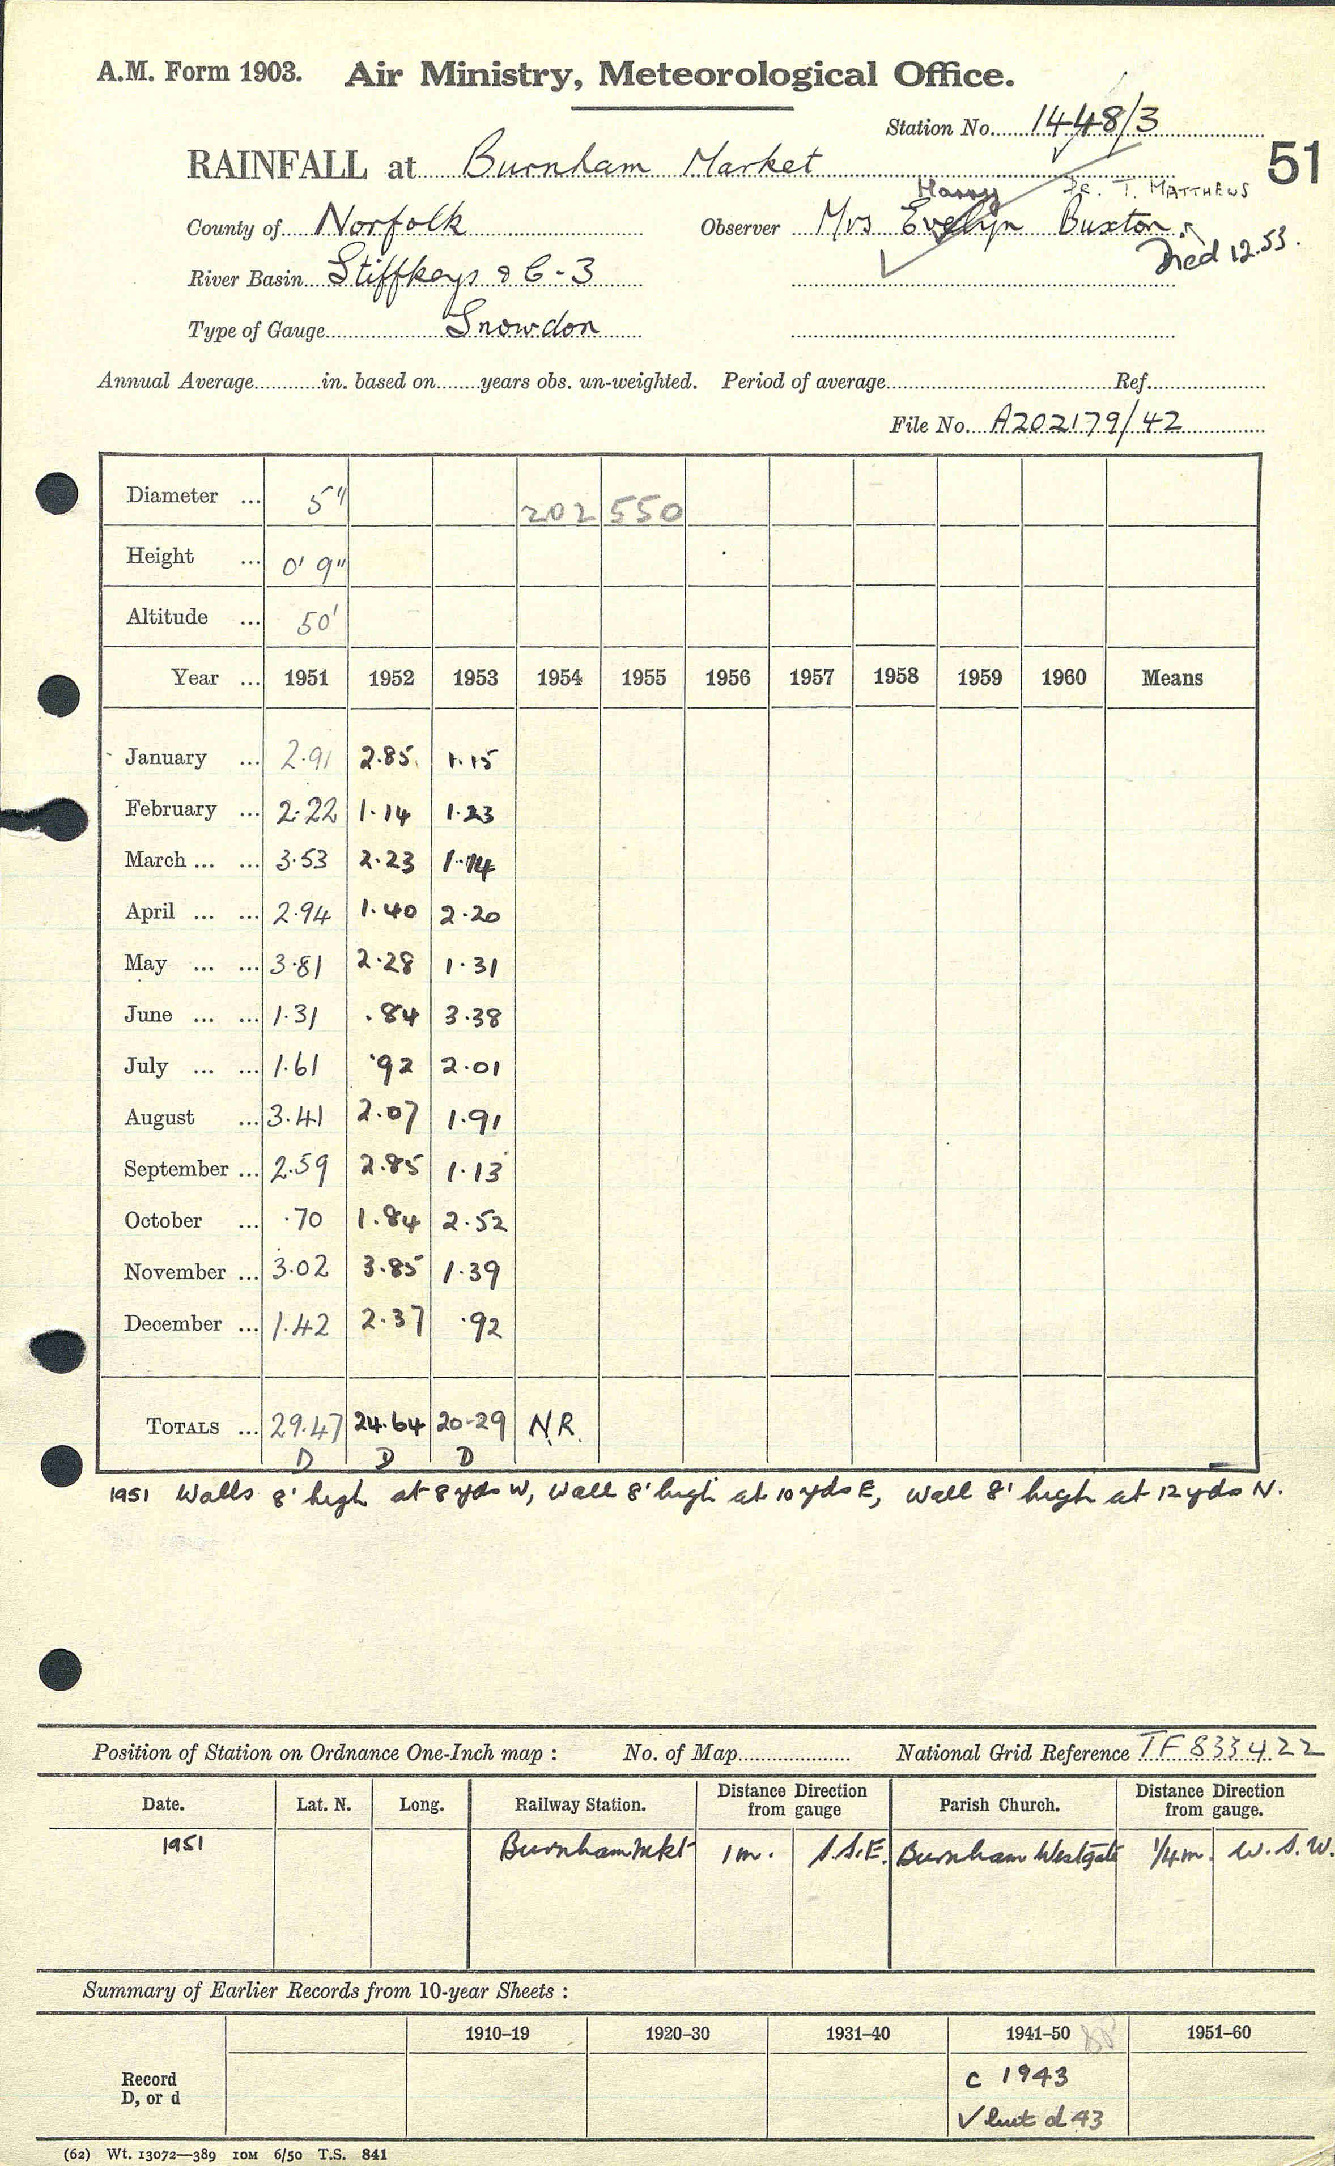 A.M. Form 1903. Air Ministry, Meteorological Office.
Station No. 1448/3
51
RAINFALL at Burnham Market
Harry Dr. T. MATTHEWS
County of Norfolk Observer Mrs Evelyn Buxton
Died 12.53.
River Basin Stiffkey & C-3
Type of Gauge Snowdon
Annual Average in. based on years obs. un-weighted. Period of average Ref.
File No. A202179/42
Diameter ... 5" 202 550
Height ... 0' 9"
Altitude ... 50'
Year ... 1951 1952 1953 1954 1955 1956 1957 1958 1959 1960 Means
January ... 2.91 2.85 1.15
February ... 2.22 1.14 1.23
March ... ... 3.53 2.23 1.14
April ... ... 2.94 1.40 2.20
May ... ... 3.81 2.28 1.31
June ... ... 1.31 .84 3.38
July ... ... 1.61 .92 2.01
August ... 3.41 2.07 1.91
September ... 2.59 2.85 1.13
October ... .70 1.84 2.52
November ... 3.02 3.85 1.39
December ... 1.42 2.37 .92
TOTALS ... 29.47 24.64 20.29 N.R.
D D D
1951 Walls 8' high at 8 yds W, Wall 8' high at 10 yds E, Wall 8' high at 12 yds N.
Position of Station on Ordnance One-Inch map : No. of Map National Grid Reference TF 833422
Date. Lat. N. Long. Railway Station. Distance Direction from gauge Parish Church. Distance Direction from gauge.
1951 Burnham Mkt 1m. S.S.E. Burnham Westgate 1/4m. W.S.W.
Summary of Earlier Records from 10-year Sheets :
1910-19 1920-30 1931-40 1941-50 1951-60
Record D, or d c 1943
✓ but d 43
(62) Wt. 13072—389 10M 6/50 T.S. 841